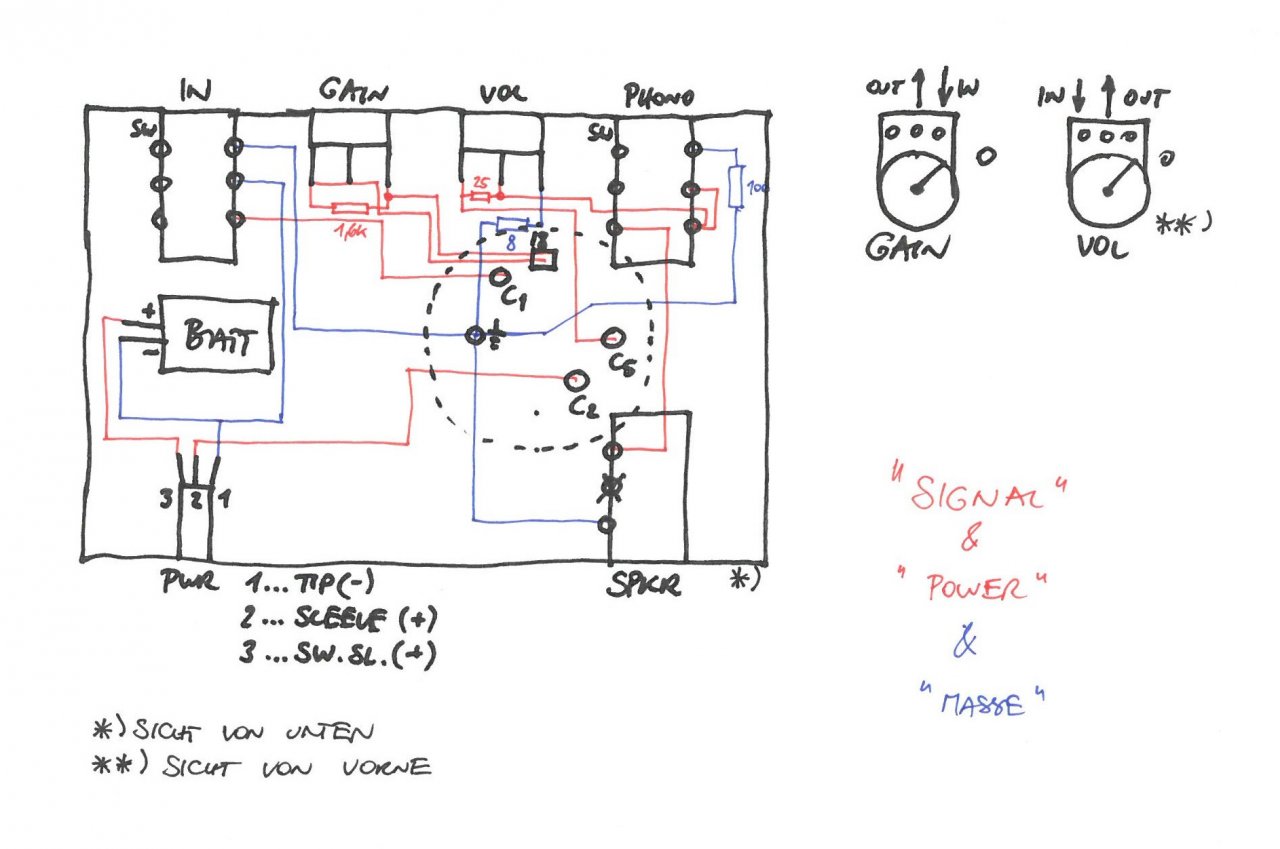 IN GAIN VOL PHONO
SW SW
25 100
1,6k 8 18
C1
+
BATT
-
C5
C2
3 2 1
PWR 1...TIP(-) SPKR *)
2...SLEEVE (+)
3...SW.SL.(+)
*) SICHT VON UNTEN
**) SICHT VON VORNE
OUT IN IN OUT
GAIN VOL **)
"SIGNAL"
&
"POWER"
&
"MASSE"